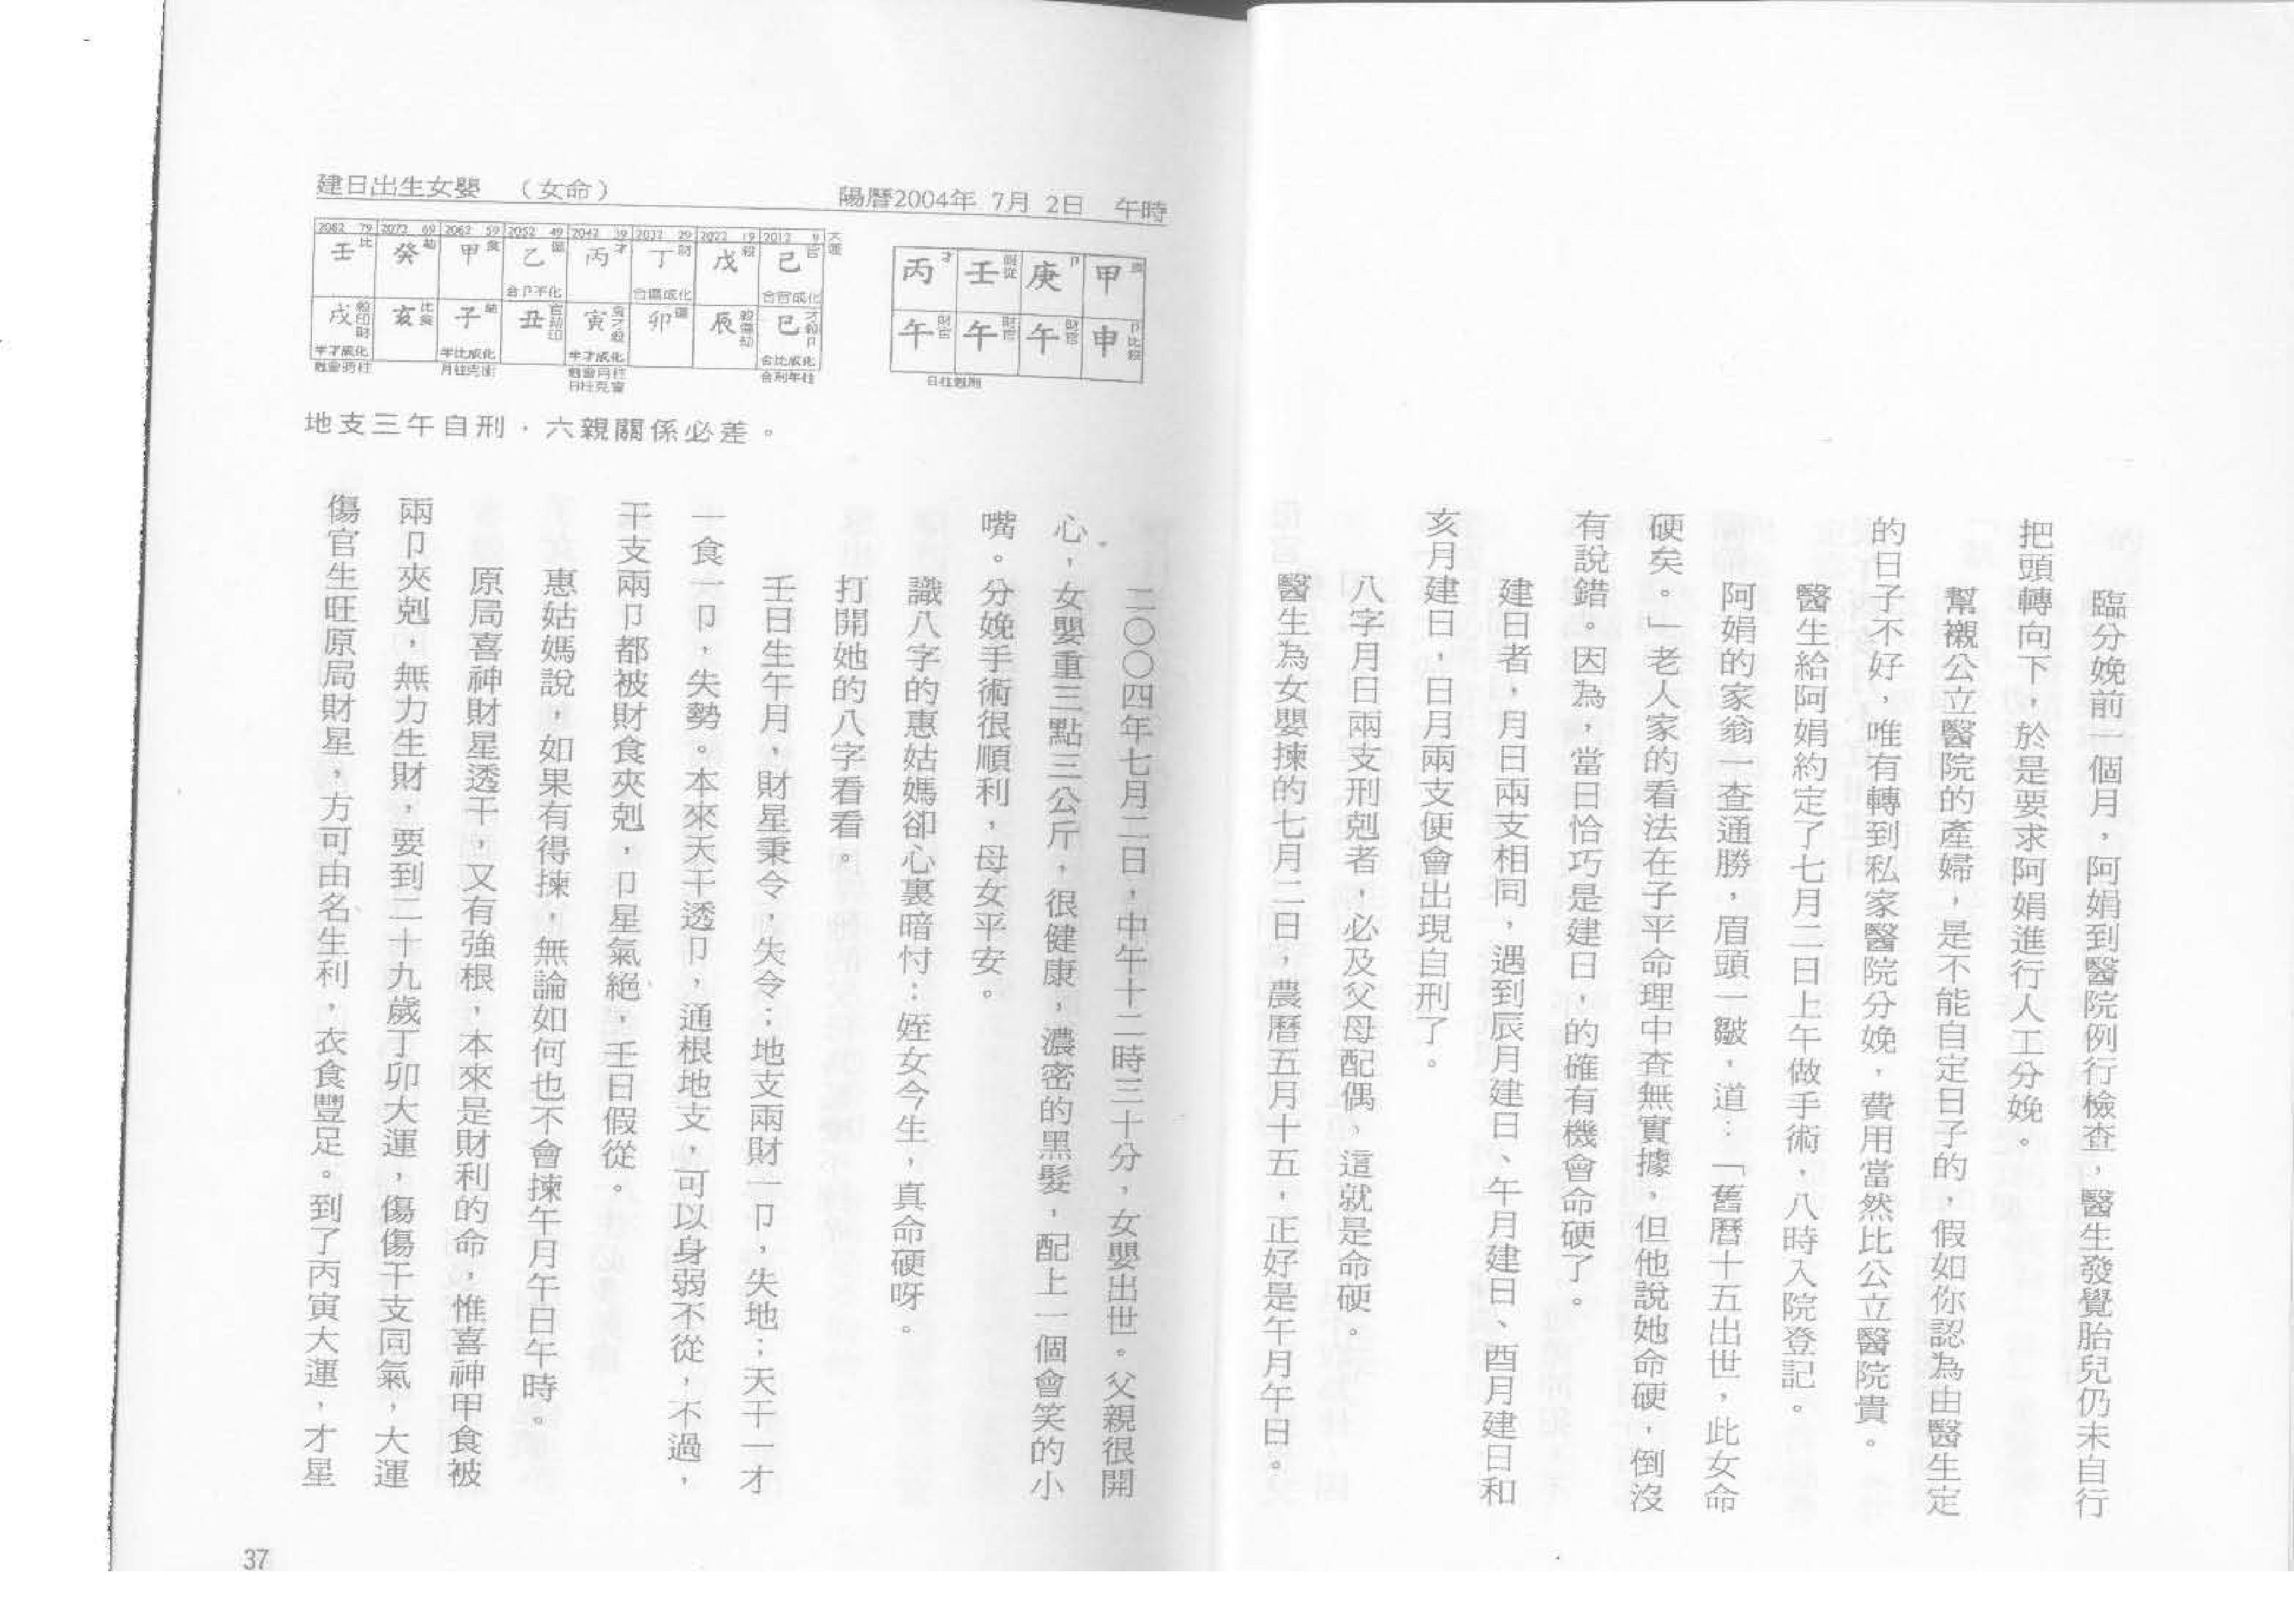 臨分娩前一個月，阿娟到醫院例行檢查，醫生發覺胎兒仍未自行
把頭轉向下，於是要求阿娟進行人工分娩。
幫襯公立醫院的產婦，是不能自定日子的，假如你認為由醫生定
的日子不好，唯有轉到私家醫院分娩，費用當然比公立醫院貴。
醫生給阿娟約定了七月二日上午做手術，八時入院登記。
阿娟的家翁一查通勝，眉頭一皺，道：「舊曆十五出世，此女命
硬矣。」老人家的看法在子平命理中查無實據，但他說她命硬，倒沒
有說錯。因為，當日恰巧是建日，的確有機會命硬了。
建日者，月日兩支相同，遇到辰月建日、午月建日、酉月建日和
亥月建日，日月兩支便會出現自刑了。
八字月日兩支刑剋者，必及父母配偶，這就是命硬。
醫生為女嬰揀的七月二日，農曆五月十五，正好是午月午日。
建日出生女嬰 （女命） 陽曆2004年 7月 2日 午時
丙才 壬 庚卩 甲食
午財官 午財官 午財官 申卩比殺
大運
2082 79 2072 69 2062 59 2052 49 2042 39 2032 29 2022 19 2012 9
壬比 癸劫 甲食 乙傷 丙才 丁財 戊殺 己官
合卩不化 合傷成化 合官成化
戌殺印財 亥比食 子劫 丑官劫印 寅食才殺 卯傷 辰殺傷劫 巳才殺卩
半才成化 半比成化 半才成化 合比成化
月柱克衝 合刑年柱
地支三午自刑，六親關係必差。
二〇〇四年七月二日，中午十二時三十分，女嬰出世。父親很開
心，女嬰重三點三公斤，很健康，濃密的黑髮，配上一個會笑的小
嘴。分娩手術很順利，母女平安。
識八字的惠姑媽卻心裏暗忖：姪女今生，真命硬呀。
打開她的八字看看。
壬日生午月，財星秉令，失令；地支兩財一卩，失地；天干一才
一食一卩，失勢。本來天干透卩，通根地支，可以身弱不從，不過，
干支兩卩都被財食夾剋，卩星氣絕，壬日假從。
惠姑媽說，如果有得揀，無論如何也不會揀午月午日午時。
原局喜神財星透干，又有強根，本來是財利的命，惟喜神甲食被
兩卩夾剋，無力生財，要到二十九歲丁卯大運，傷傷干支同氣，大運
傷官生旺原局財星，方可由名生利，衣食豐足。到了丙寅大運，才星
37